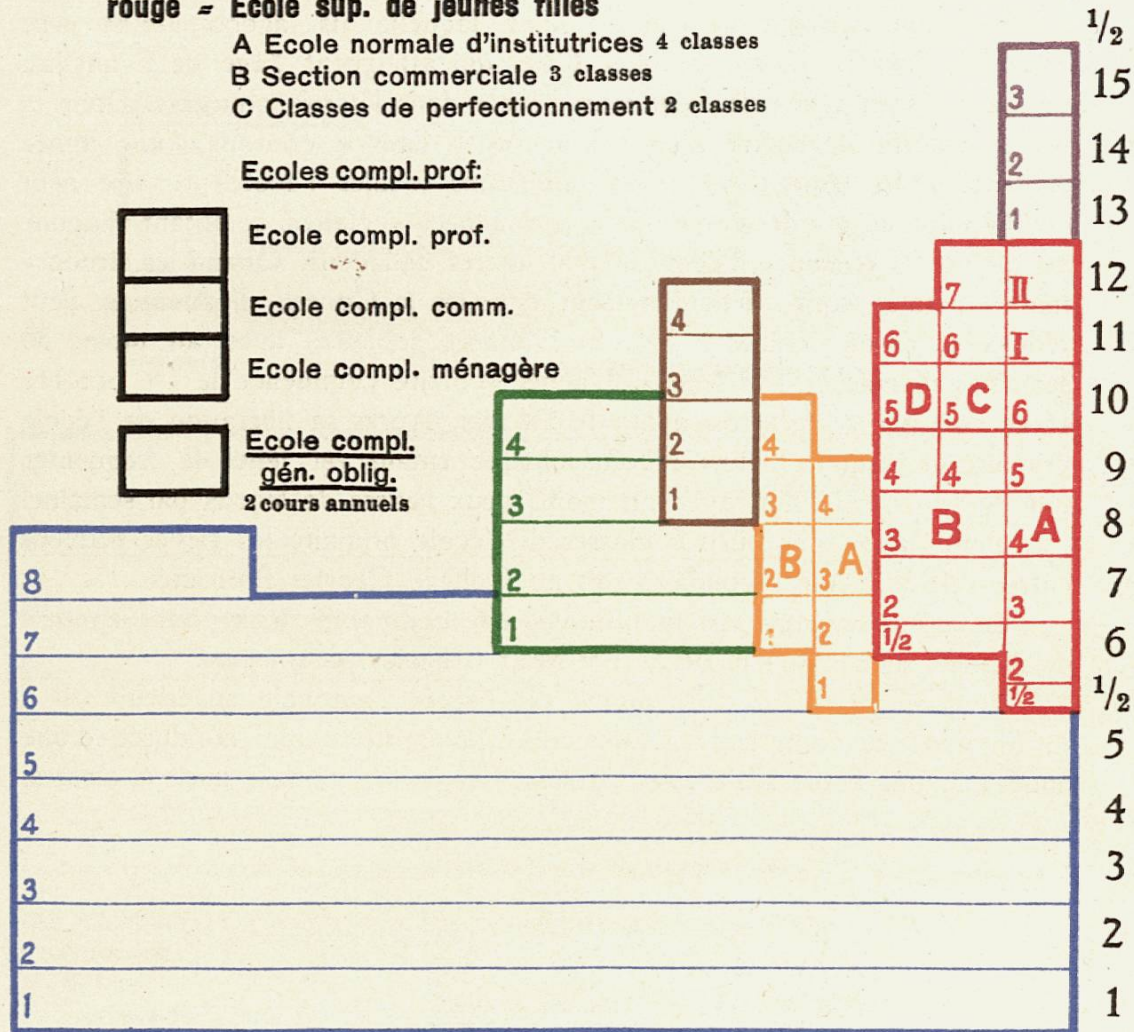 rouge = Ecole sup. de jeunes filles
A Ecole normale d'institutrices 4 classes
B Section commerciale 3 classes
C Classes de perfectionnement 2 classes
Ecoles compl. prof:
Ecole compl. prof.
Ecole compl. comm.
Ecole compl. ménagère
Ecole compl.
gén. oblig.
2 cours annuels
1/2
3 15
2 14
1 13
7 II 12
4 6 6 I 11
3 5 D 5 C 6 10
4 2 4 4 4 5 9
3 1 3 4 3 B 4 A 8
8 2 2 B 3 A 2 3 7
7 1 1 2 1/2 6
6 1 2 1/2 1/2
5 5
4 4
3 3
2 2
1 1